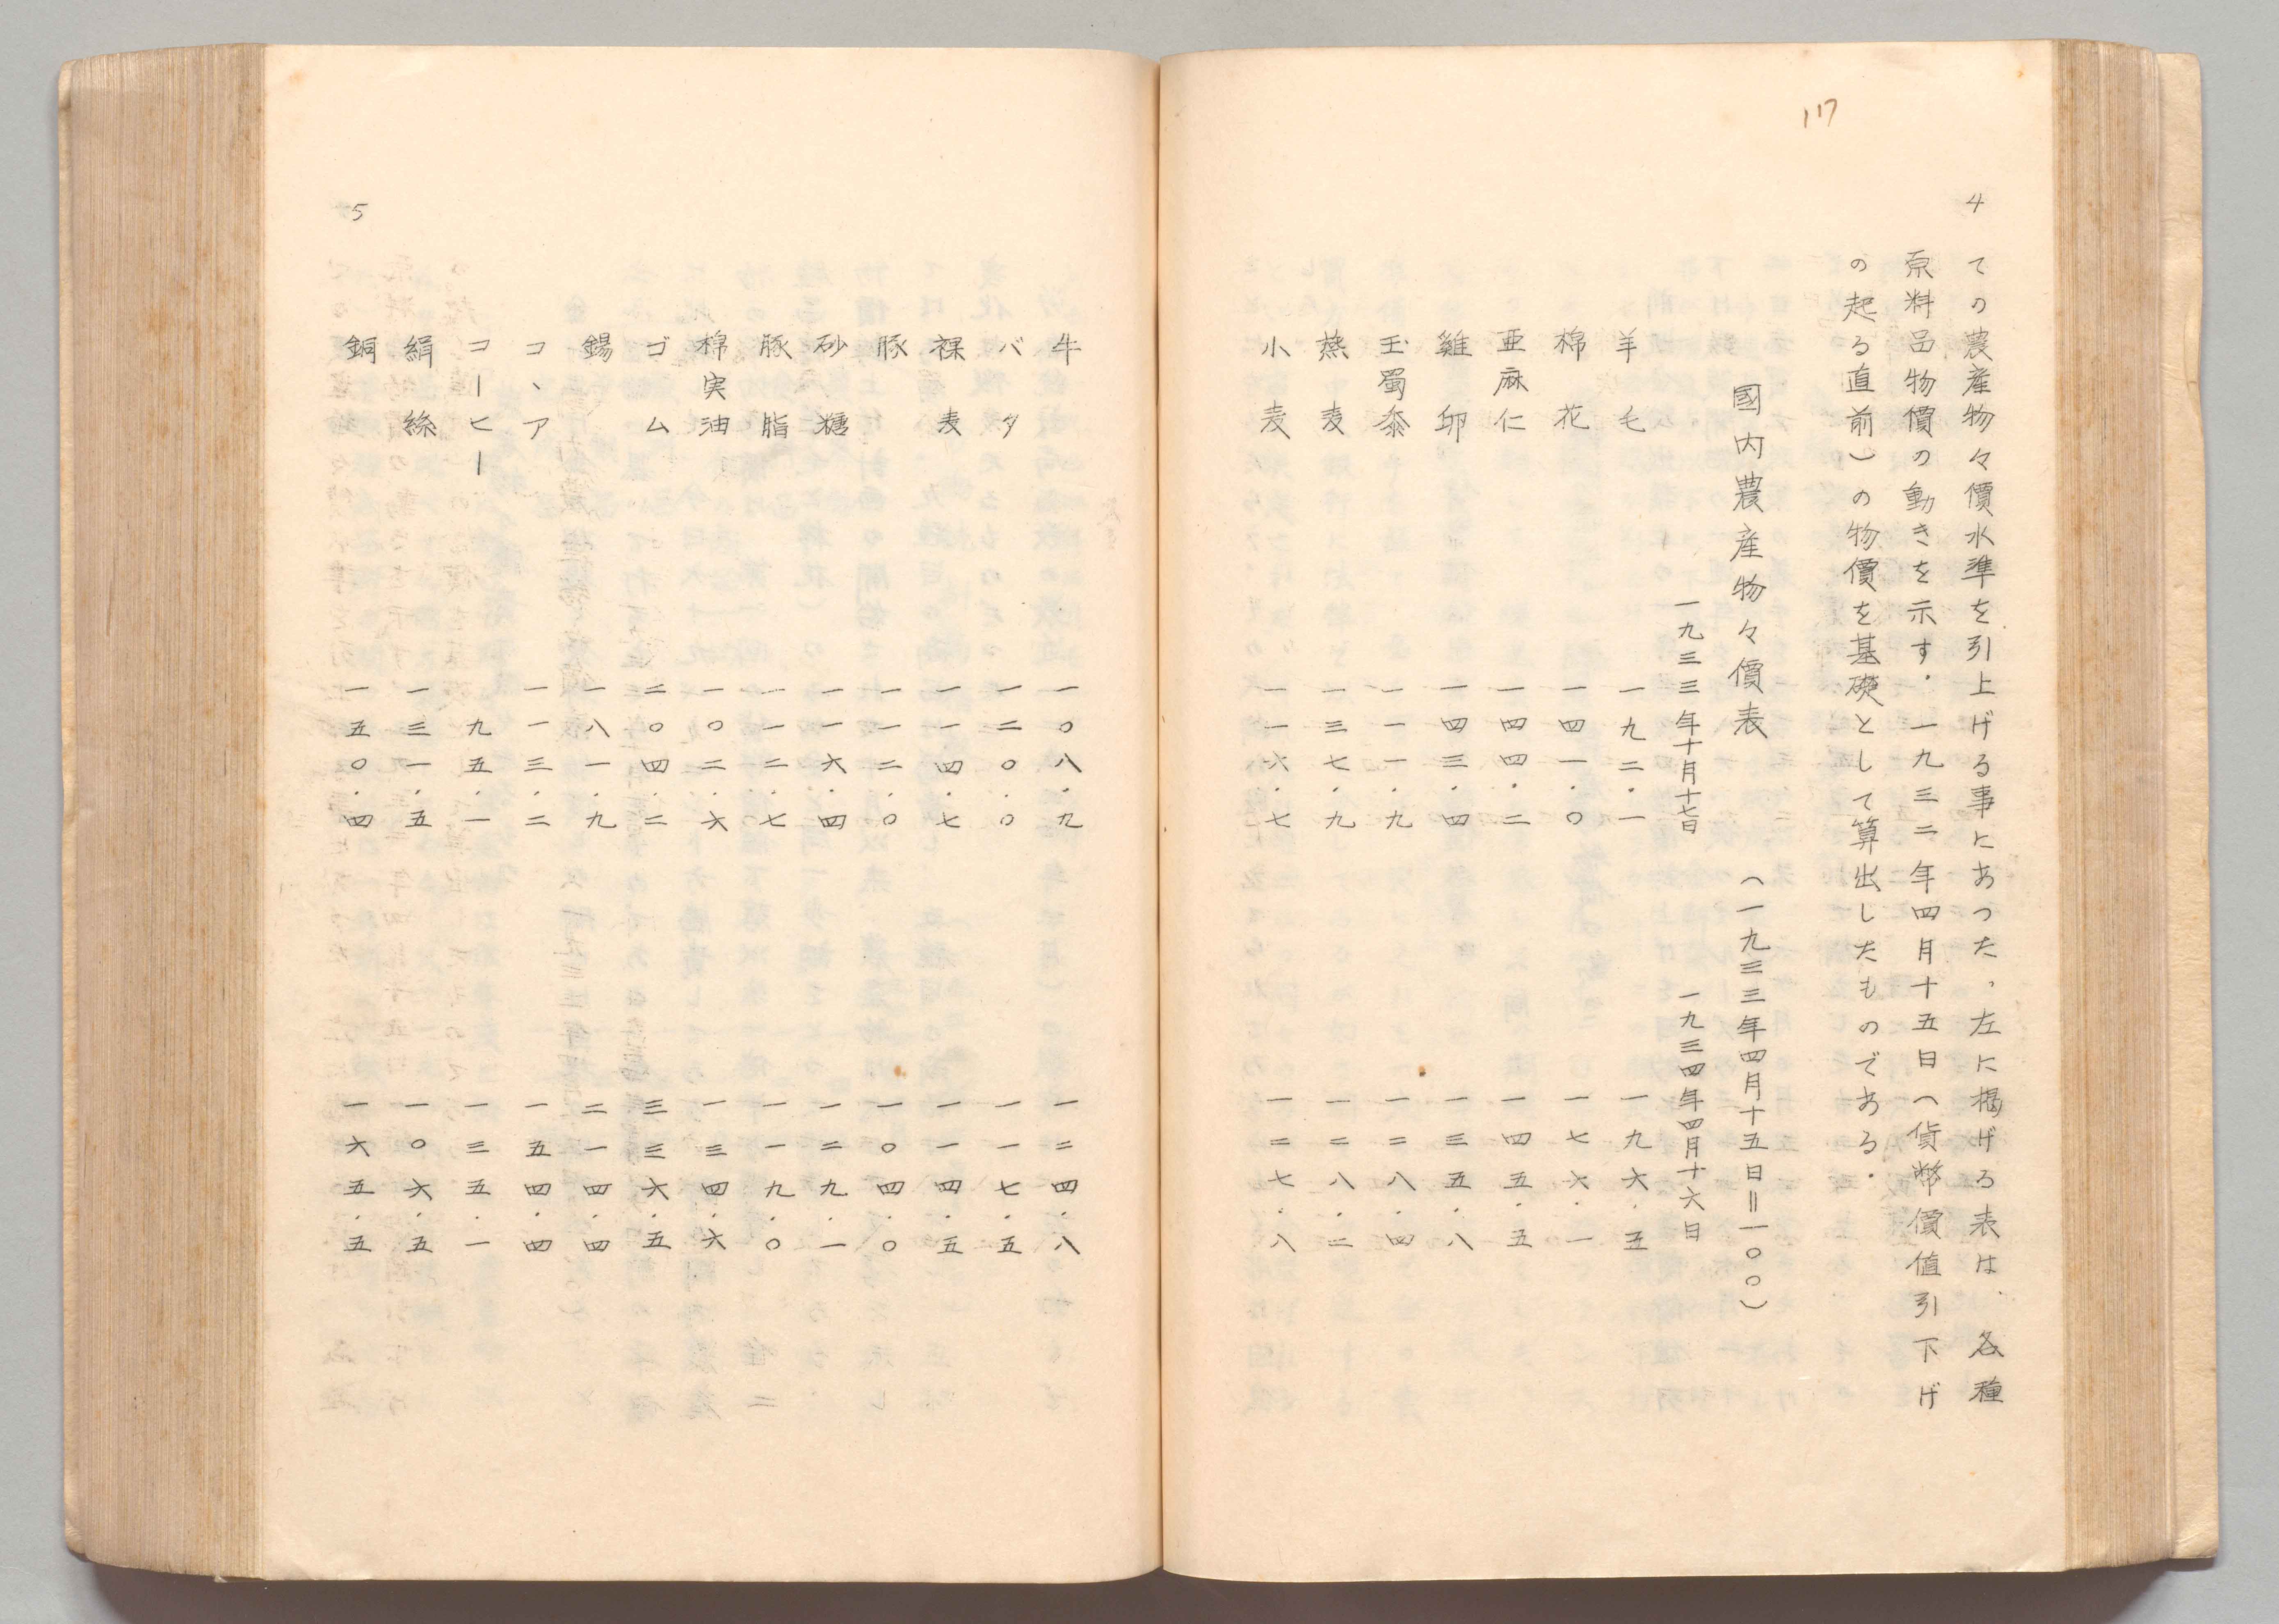 117
4
ての農産物々價水準を引上げる事にあつた。左に揭げる表は、各種
原料品物價の動きを示す．一九三二年四月十五日(貨幣價値引下げ
の起る直前)の物價を基礎として算出したものである．
國內農産物々價表 (一九三三年四月十五日＝一〇〇)
一九三三年十月十七日 一九三四年四月十六日
羊毛 一九二．一 一九六．五
棉花 一四一．〇 一七六．一
亜麻仁 一四四．二 一四五．五
雞卵 一四三．四 一三五．八
玉蜀黍 一一一．九 一二八．四
燕麦 一三七．九 一二八．二
小麦 一一六．七 一二七．八
牛 一〇八．九 一二四．八
バタ 一二〇．〇 一一七．五
裸麦 一一四．七 一一四．五
豚 一一二．〇 一〇四．〇
砂糖 一一六．四 一二九．一
豚脂 一一二．七 一一九．〇
棉実油 一〇二．六 一三四．六
ゴム 二〇四．二 三三六．五
錫 一八一．九 二一四．四
コヽア 一一三．二 一五四．四
コーヒー 九五．一 一三五．一
絹絲 一三一．五 一〇六．五
銅 一五〇．四 一六五．五
5